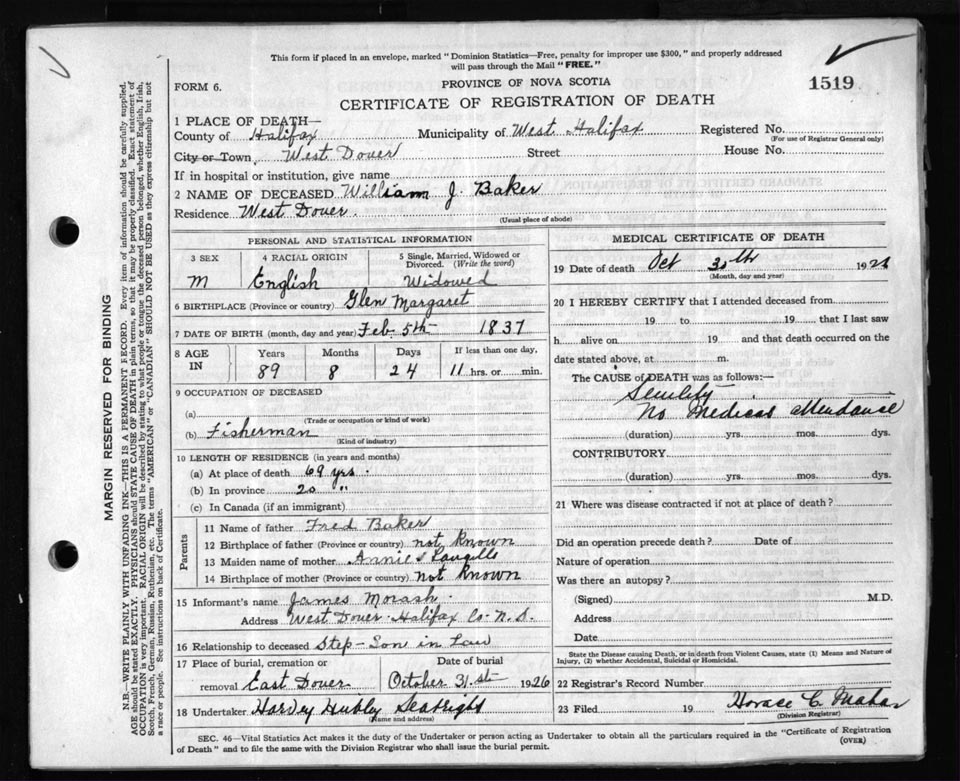 This form if placed in an envelope, marked "Dominion Statistics—Free, penalty for improper use $300," and properly addressed
will pass through the Mail "FREE."
FORM 6.
PROVINCE OF NOVA SCOTIA
1519
CERTIFICATE OF REGISTRATION OF DEATH
1 PLACE OF DEATH—
County of Halifax Municipality of West Halifax Registered No.
(For use of Registrar General only)
City or Town, West Dover Street House No.
If in hospital or institution, give name
2 NAME OF DECEASED William J. Baker
Residence West Dover.
(Usual place of abode)
PERSONAL AND STATISTICAL INFORMATION
3 SEX 4 RACIAL ORIGIN 5 Single, Married, Widowed or Divorced. (Write the word)
M English Widowed
6 BIRTHPLACE (Province or country) Glen Margaret
7 DATE OF BIRTH (month, day and year) Feb. 5th 1837
8 AGE IN Years Months Days If less than one day,
89 8 24 11 hrs. or min.
9 OCCUPATION OF DECEASED
(a)
(Trade or occupation or kind of work)
(b) Fisherman
(Kind of industry)
10 LENGTH OF RESIDENCE (in years and months)
(a) At place of death 69 yrs.
(b) In province 20 "
(c) In Canada (if an immigrant)
Parents
11 Name of father Fred Baker
12 Birthplace of father (Province or country) not known
13 Maiden name of mother Annie
14 Birthplace of mother (Province or country) not known
15 Informant's name James Morash.
Address West Dover. Halifax Co. N.S.
16 Relationship to deceased Step-Son in law
17 Place of burial, cremation or Date of burial
removal East Dover October 31st 1926
18 Undertaker Harvey Hubly Seabright
(Name and address)
MEDICAL CERTIFICATE OF DEATH
19 Date of death Oct 30th 1926
(Month, day and year)
20 I HEREBY CERTIFY that I attended deceased from
19 to 19 that I last saw
h alive on 19 and that death occurred on the
date stated above, at m.
The CAUSE of DEATH was as follows:—
Senility
No Medical Attendance
(duration) yrs. mos. dys.
CONTRIBUTORY
(duration) yrs. mos. dys.
21 Where was disease contracted if not at place of death?
Did an operation precede death? Date of
Nature of operation
Was there an autopsy?
(Signed) M.D.
Address
Date
State the Disease causing Death, or in death from Violent Causes, state (1) Means and Nature of
Injury, (2) whether Accidental, Suicidal or Homicidal.
22 Registrar's Record Number
23 Filed 19 Horace C.
(Division Registrar)
SEC. 46—Vital Statistics Act makes it the duty of the Undertaker or person acting as Undertaker to obtain all the particulars required in the "Certificate of Registration
of Death" and to file the same with the Division Registrar who shall issue the burial permit.
(OVER)
MARGIN RESERVED FOR BINDING
N.B.—WRITE PLAINLY WITH UNFADING INK—THIS IS A PERMANENT RECORD. Every item of information should be carefully supplied.
AGE should be stated EXACTLY. PHYSICIANS should STATE CAUSE OF DEATH in plain terms, so that it may be properly classified. Exact statement of
OCCUPATION is very important. RACIAL ORIGIN will be described by stating to what people or tongue the deceased person belonged, whether English, Irish,
Scotch, French, German, Russian, Ruthenian, etc. The terms "AMERICAN" or "CANADIAN" SHOULD NOT BE USED as they express citizenship but not
a race or people. See instructions on back of Certificate.